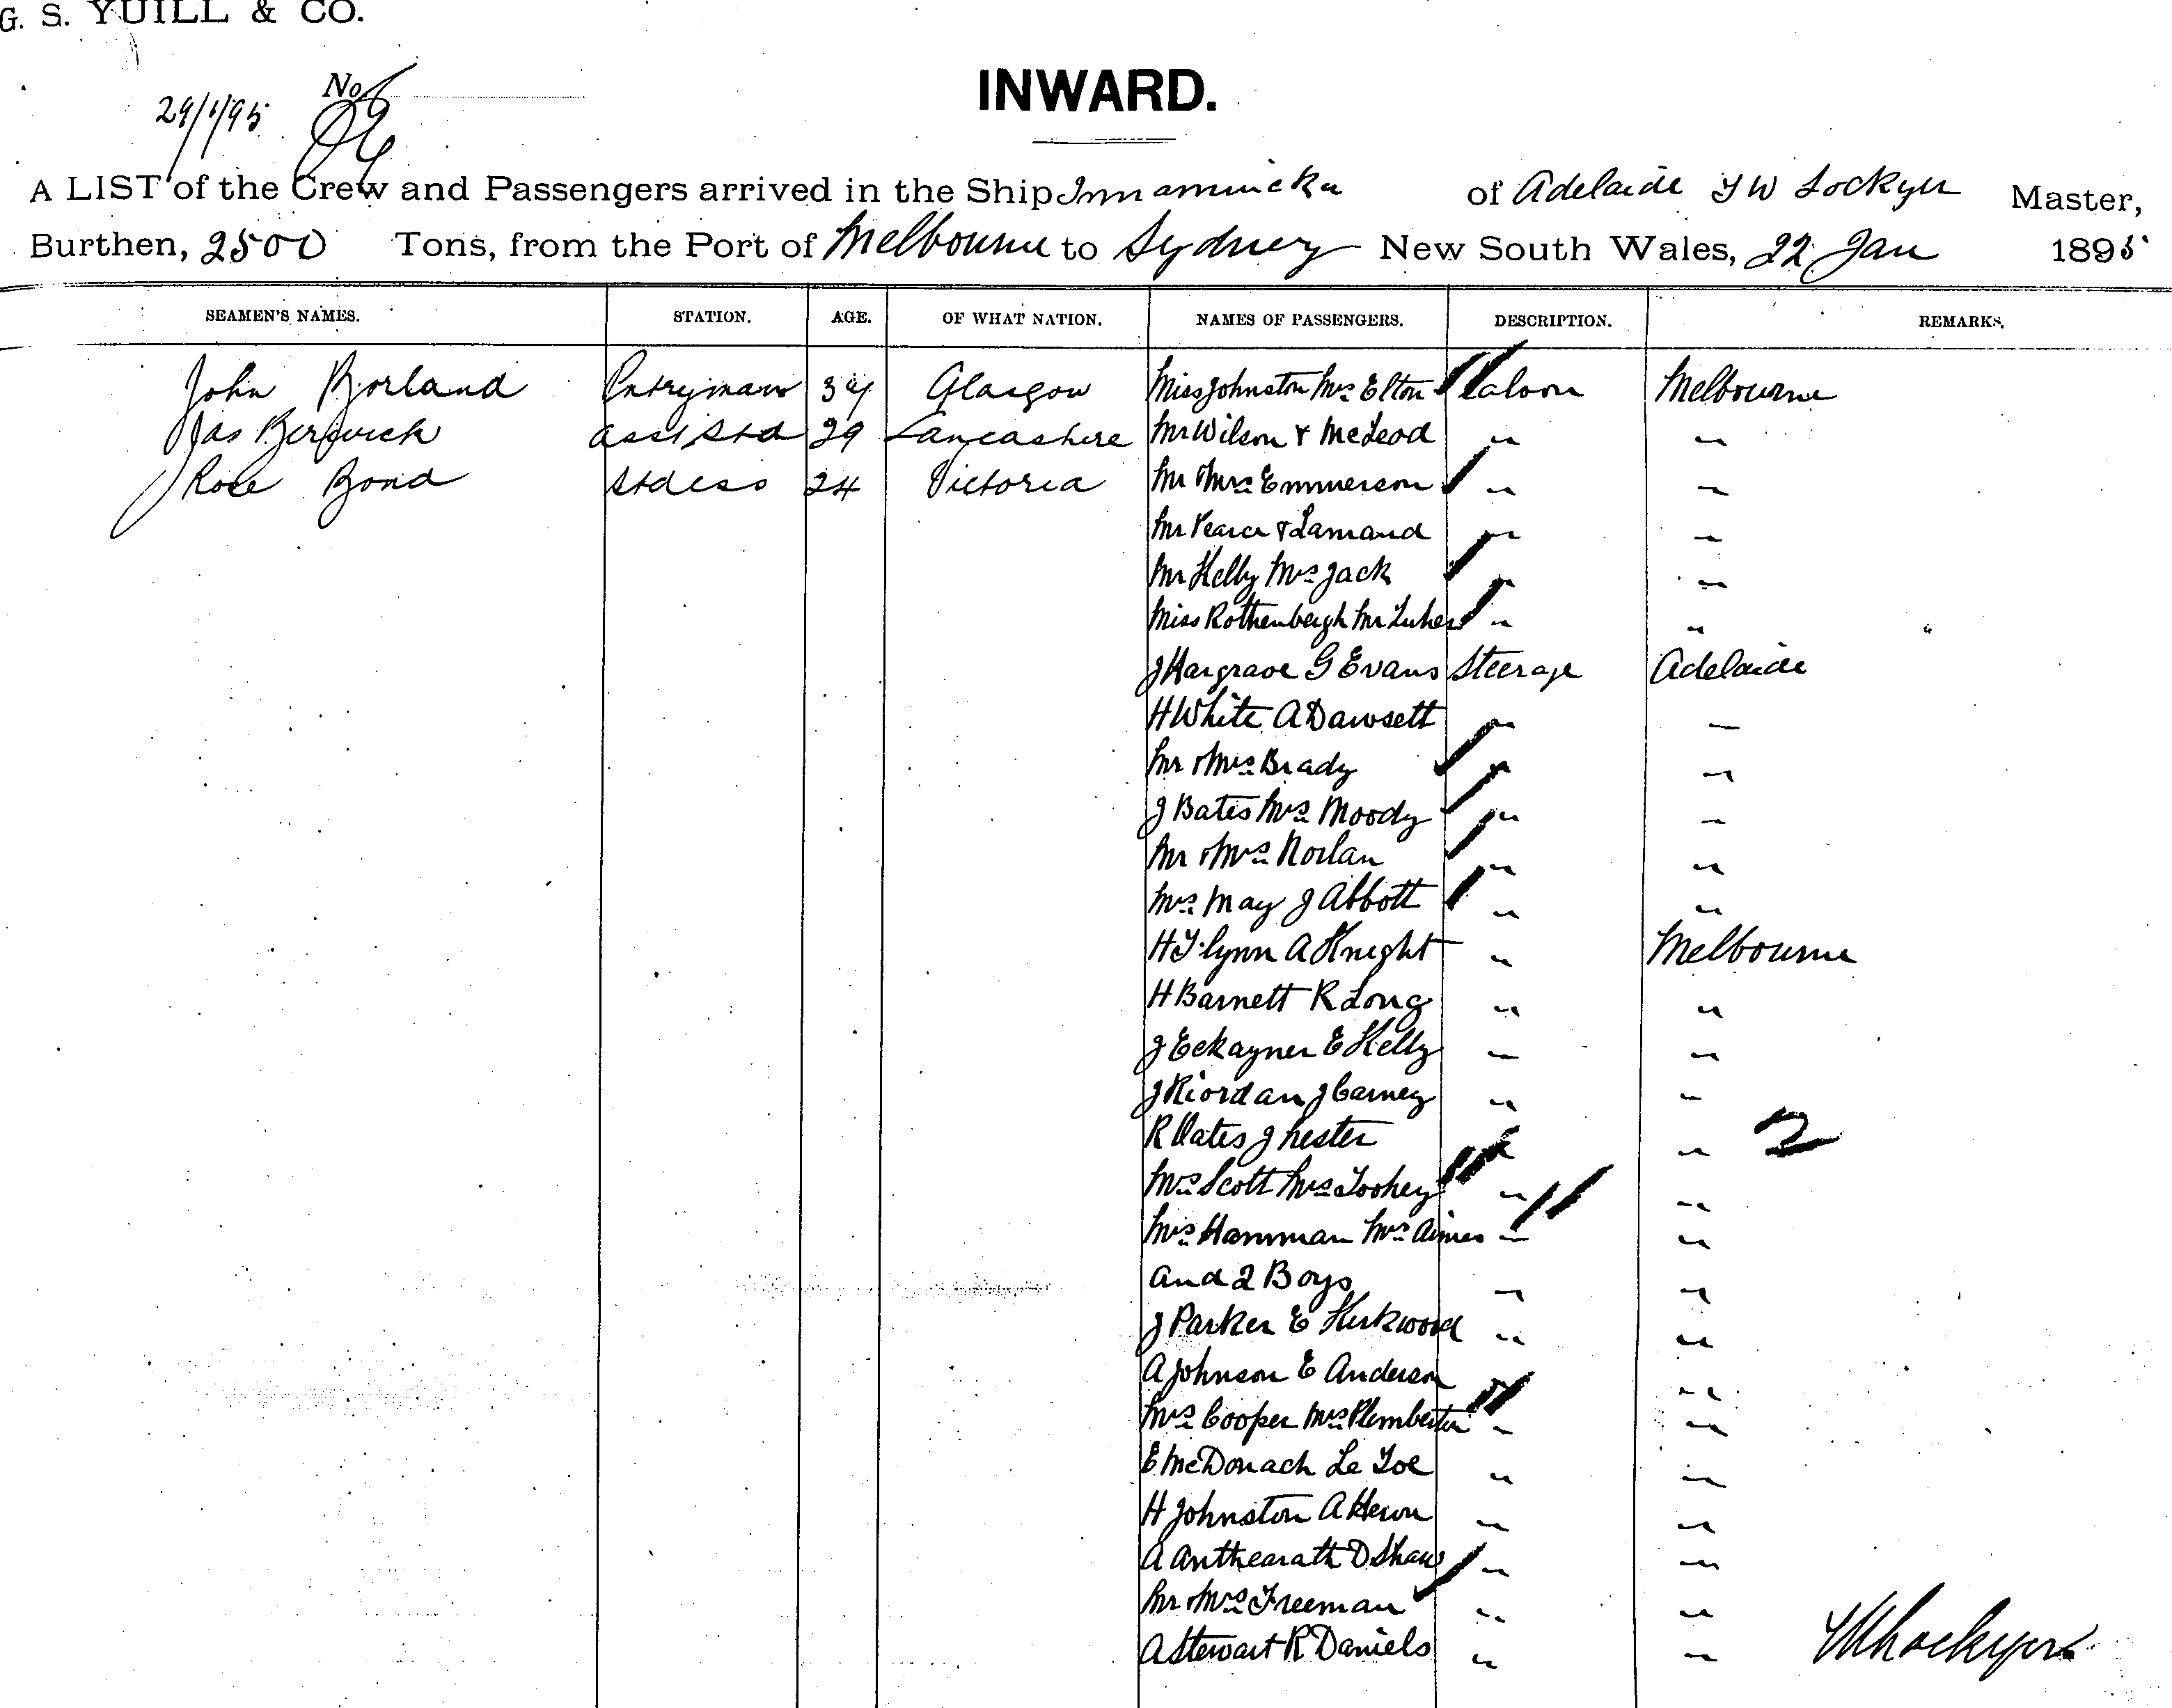 G. S. YUILL & CO.
INWARD.
No.
29/1/95
A LIST of the Crew and Passengers arrived in the Ship Innamincka of Adelaide T W Lockyer Master,
Burthen, 2500 Tons, from the Port of Melbourne to Sydney New South Wales, 22 Jan 1895
SEAMEN'S NAMES. STATION. AGE. OF WHAT NATION. NAMES OF PASSENGERS. DESCRIPTION. REMARKS.
John Borland Pntryman 34 Glasgow Miss Johnston Mrs Elton Saloon Melbourne
Jas Berwick asst Std 29 Lancashire Mr Wilson & McLeod " "
Rose Bond Stdess 24 Victoria Mr & Mrs Emmerson " "
Mr Pearce & Lamand " "
Mr Kelly Mrs Jack " "
Miss Rothenbergh Mr Luher " "
J Hargrave G Evans Steerage Adelaide
H White A Dawsett " "
Mr & Mrs Brady " "
J Bates Mrs Moody " "
Mr & Mrs Norlan " "
Mrs May J Abbott " "
H Flynn A Knight " Melbourne
H Barnett R Long " "
J Eckayner E Kelly " "
J Riordan J Carney " "
R Oates J hester " " 2
Mrs Scott Mrs Toohey " "
Mrs Hamman Mrs Aimes " "
and 2 Boys " "
J Parker E Kirkwood " "
A Johnson E Anderson "
Mrs Cooper Mrs Plemberton " "
E McDonach Le Toe " "
H Johnston A Heron " "
A Anthearath D Shaw " "
Mr & Mrs Freeman " "
A Stewart R Daniels " " TW Lockyer